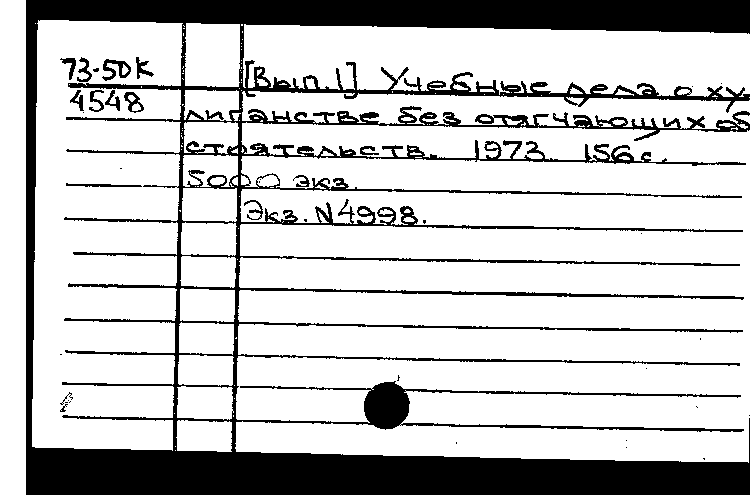 73-50К [Вып.1] Учебные дела о ху
4548 лиганстве без отягчающих об
стоятельств. 1973 156с.
5000 экз.
Экз. N4998.